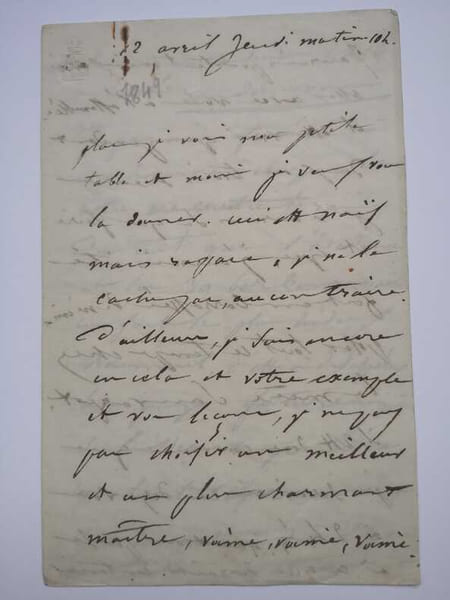 12 avril Jeudi matin 10h.
1849
plus je vois ma petite
table et moins je veux vous
la donner. ceci est naïf
mais rapace, je ne le
cache pas, au contraire.
D'ailleurs, je suis encore
en cela et votre exemple
et vos leçons, je ne peux
pas choisir un meilleur
et un plus charmant
maître, voime, voime, voime.